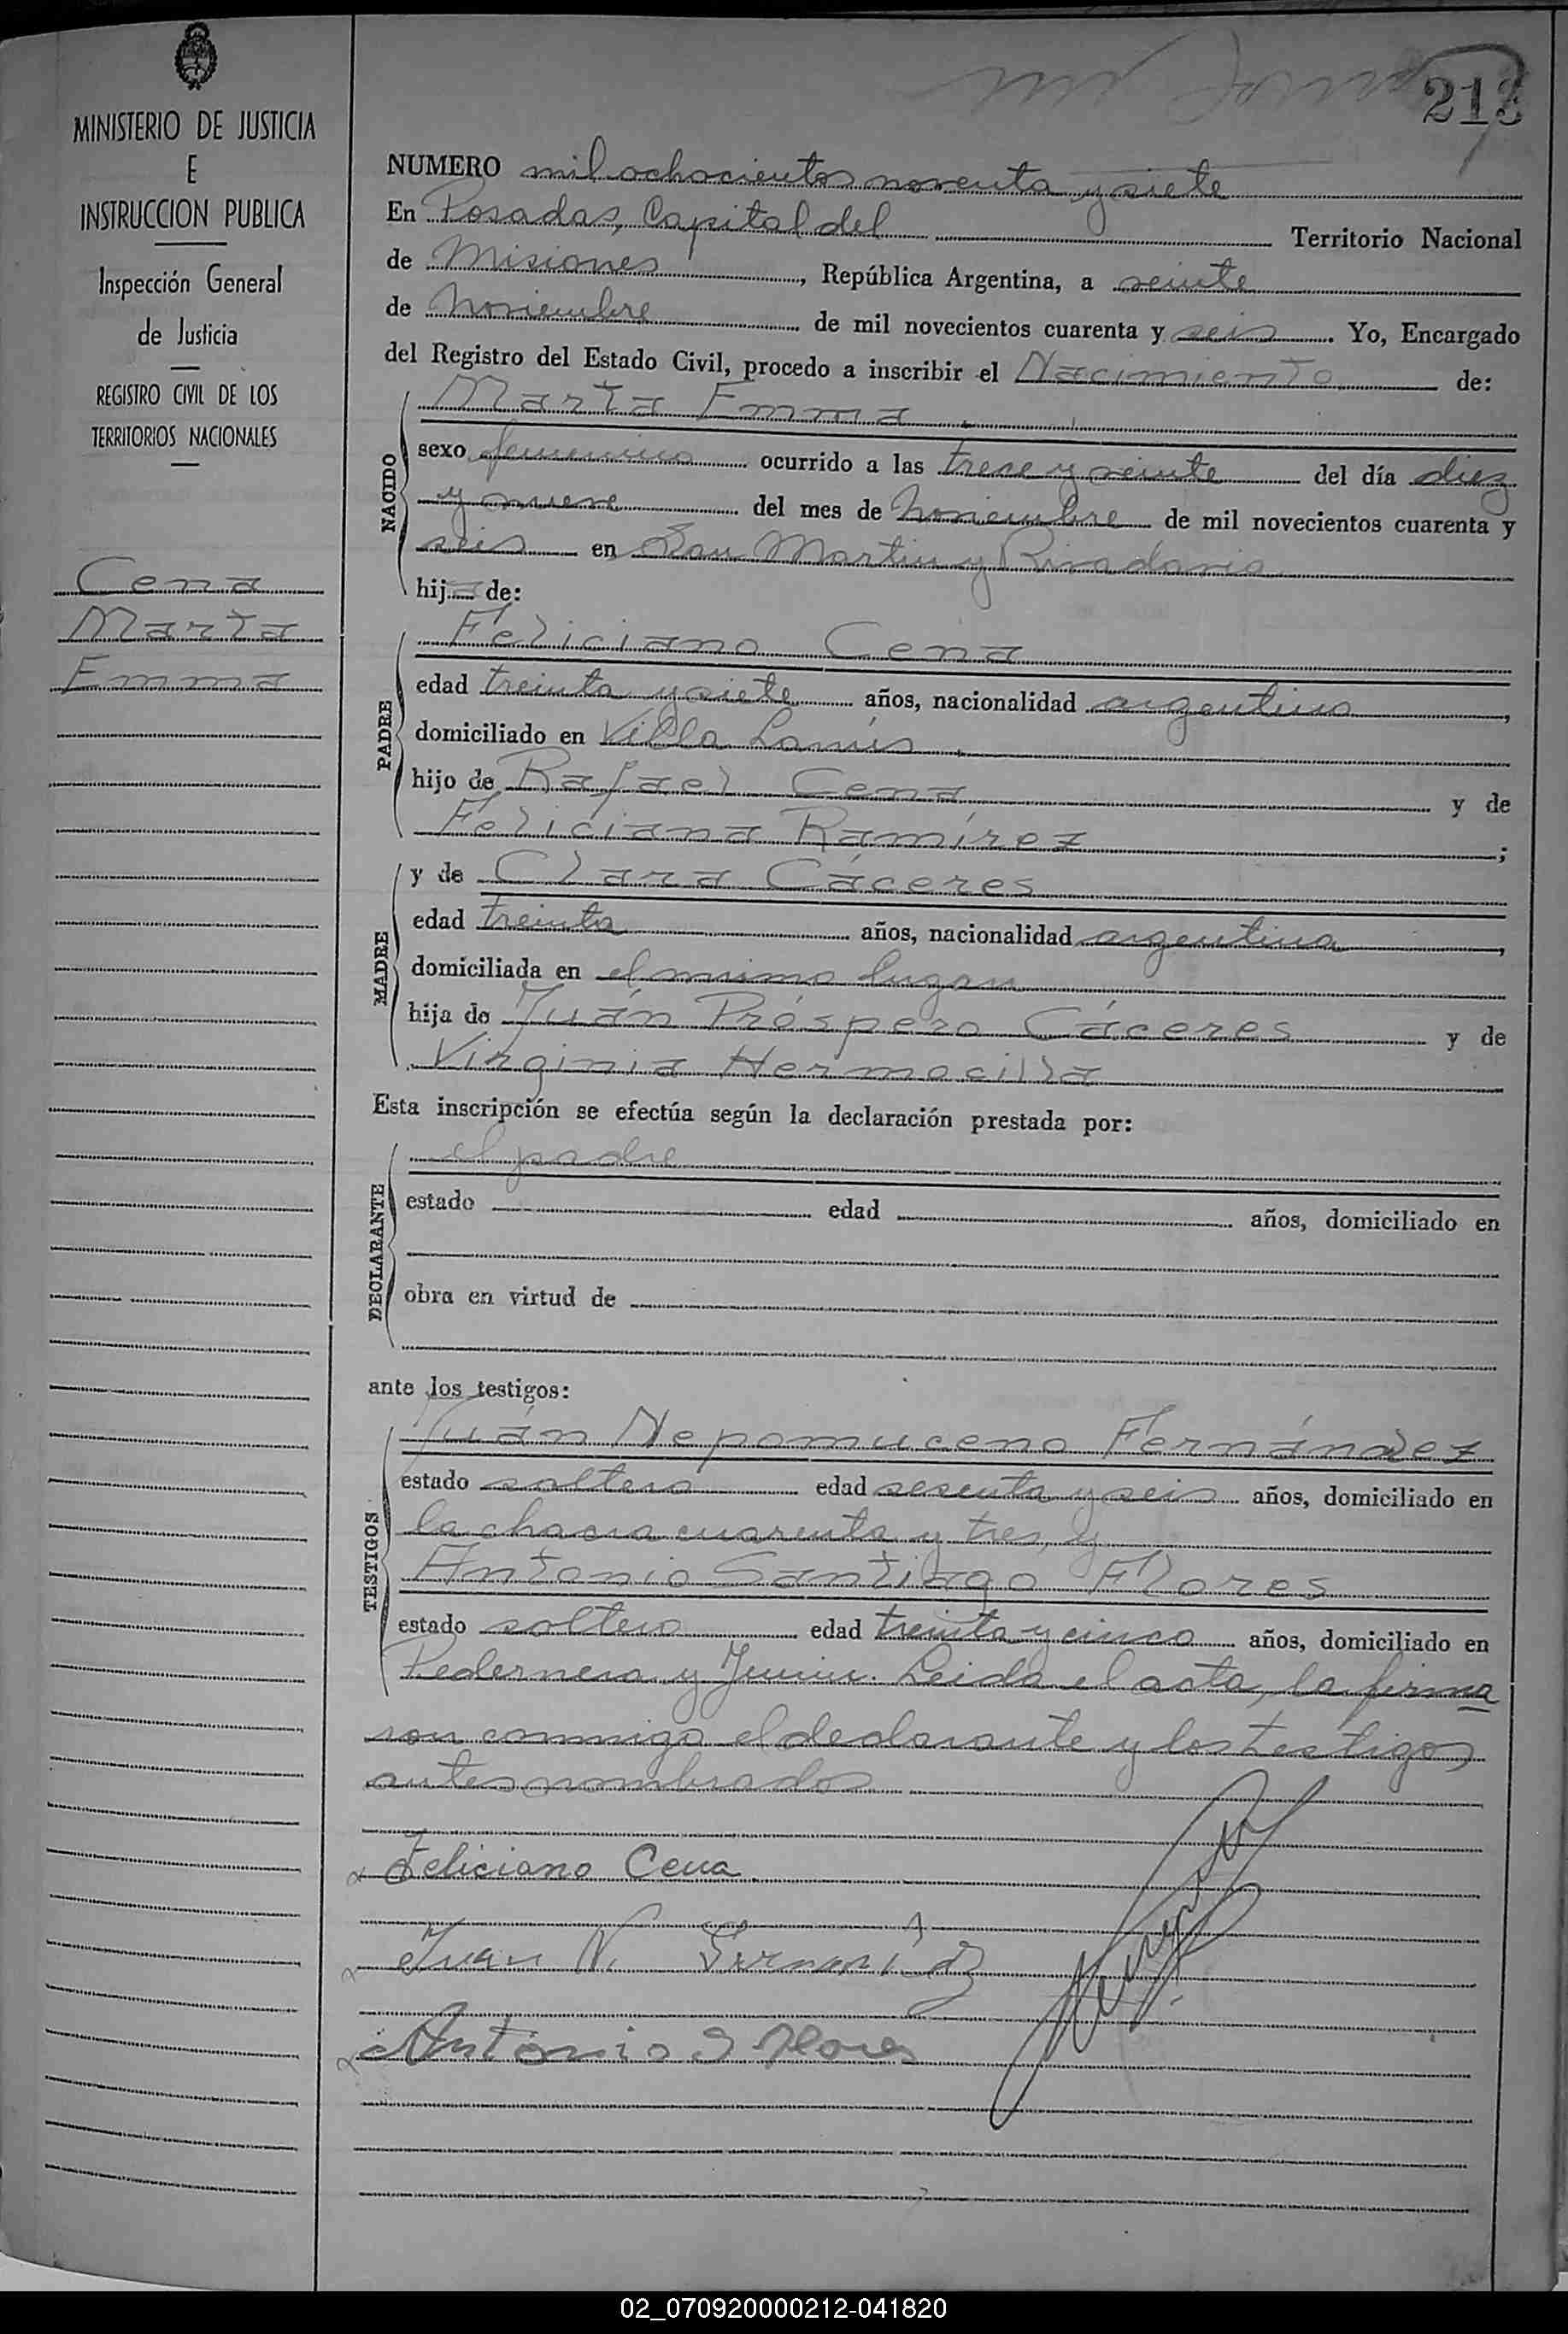 213
MINISTERIO DE JUSTICIA
E
INSTRUCCION PUBLICA
Inspección General
de Justicia
REGISTRO CIVIL DE LOS
TERRITORIOS NACIONALES
Cena
Marta
Emma
NUMERO mil ochocientos noventa y siete
En Posadas, Capital del Territorio Nacional
de Misiones, República Argentina, a veinte
de Noviembre de mil novecientos cuarenta y seis. Yo, Encargado
del Registro del Estado Civil, procedo a inscribir el Nacimiento de:
NACIDO
Marta Emma
sexo femenino ocurrido a las trece y veinte del día diez
y nueve del mes de Noviembre de mil novecientos cuarenta y
seis en San Martin y Rivadavia
hija de:
PADRE
Feliciano Cena
edad treinta y siete años, nacionalidad argentino,
domiciliado en Villa Lanús
hijo de Rafael Cena y de
Feliciana Ramírez;
MADRE
y de Clara Cáceres
edad treinta años, nacionalidad argentina,
domiciliada en el mismo lugar
hija de Juán Próspero Cáceres y de
Virginia Hermocilla
Esta inscripción se efectúa según la declaración prestada por:
DECLARANTE
el padre
estado edad años, domiciliado en
obra en virtud de
ante los testigos:
TESTIGOS
Juán Nepomuceno Fernández
estado soltero edad sesenta y seis años, domiciliado en
la chacra cuarenta y tres, y
Antonio Santiago Flores
estado soltero edad treinta y cinco años, domiciliado en
Pedernera y Junin. Leida el acta, la firma
ron conmigo el declarante y los testigos
antes nombrados
Feliciano Cena
Juan N. Fernandez
Antonio S Flores
02_070920000212-041820